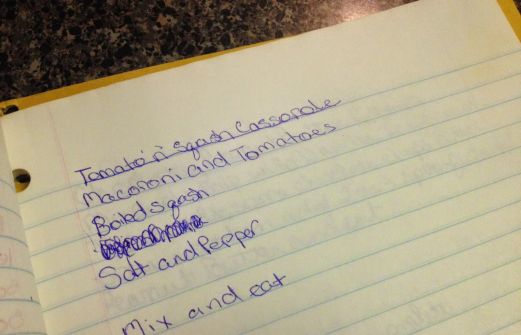 Tomato'n'sqash Cassorole
Macoroni and Tomatoes
Boiled sqash
Salt and Pepper
Mix and eat